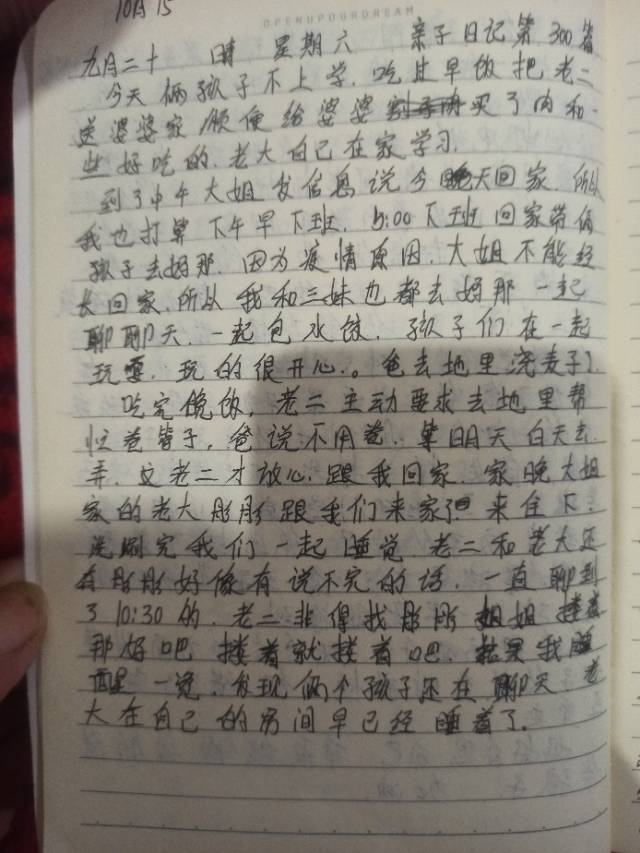 10月15
OPENUPYOURDREAM
九月二十 晴 星期六 亲子日记第300篇
今天俩孩子不上学.吃过早饭把老二
送婆婆家顺便给婆婆买了肉和一
些好吃的.老大自己在家学习.
到了中午大姐发信息说今晚天回家.所以
我也打算下午早下班.5:00下班回家带俩
孩子去好那.因为疫情原因.大姐不能经
长回家.所以我和三妹也都去好那一起
聊聊天.一起包水饺.孩子们在一起
玩耍.玩的很开心.。爸去地里浇麦子了.
吃完晚饭,老二主动要求去地里帮
忙卷管子,爸说不用卷.等明天白天去
弄.老二才放心.跟我回家.家晚大姐
家的老大彤彤跟我们来家来住下.
洗刷完我们一起睡觉 老二和老大还
有彤彤好像有说不完的话.一直聊到
了10:30的.老二非得找彤彤姐姐搂着
那好吧 搂着就搂着吧.结果我睡
醒一觉.发现俩个孩子还在聊天 老
大在自己的房间早已经睡着了.